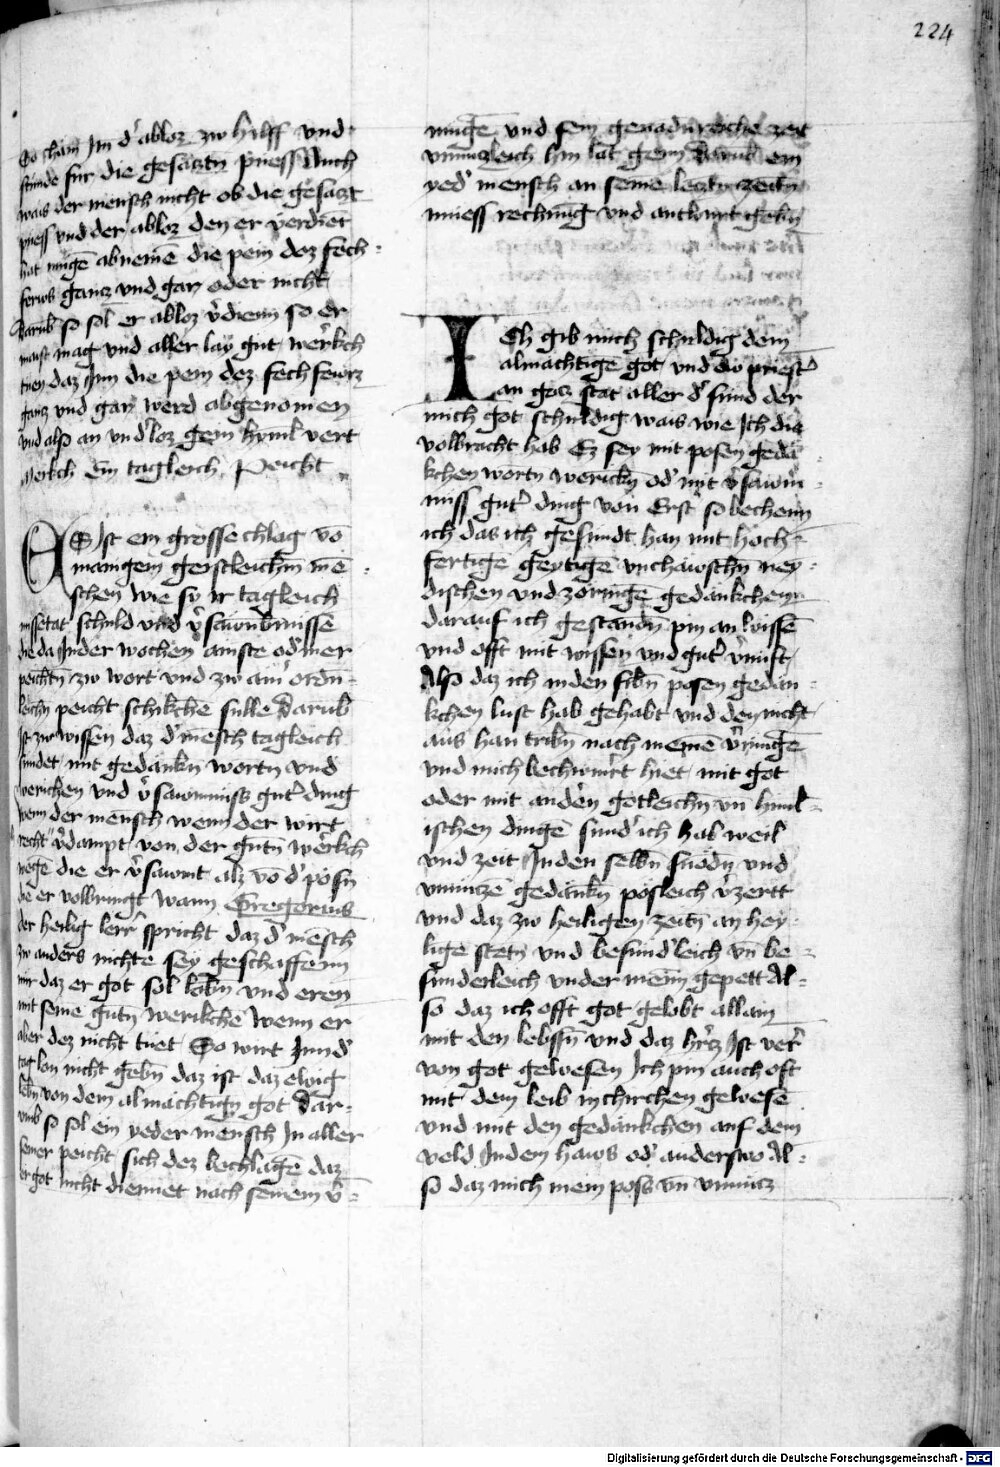 224
So cham Im d' abloz zw hilff vnd
stunde fur die gesatztn puess Auch
wais der mensch nicht ob die gesatzt
puess vnd der abloz den er verdiet
hat mugē abnemē die pein dez fech-
fewrs gancz vnd gar oder nicht
Darūb so sol er abloz v'dienn so er
maist mag vnd aller lay gut werkch
tuen daz Im die pein dez fechfewrz
gancz vnd gar werd abgenomen
vnd also an vnd'loz gein hyml vert
Merkch Ein tagleich Peicht
ES Ist ein grosse chlag vō
manigem geistleichm mē-
schen wie sy ir tagleich
missetat schuld vnd v'sawmbnusse
die da Inder wochen ainste od' mer
peichtn zw wort vnd zw ain' ordn-
leichn peicht schikchē sulle Darūb
ist zw wissen daz d' mēsch tagleich
sundet mit gedankn wortn vnd
werichen vnd v'sawmnuss gut' ding
wenn der mensch wenn der wirt
recht v'dampt von der gutn werkch
wegē die er v'sawmt alz vō d' pösn
die er volbringt wann Gregorius
der heilig lerr spricht daz d' mēsch
zw anders nichte sey geschaffenn
nur daz er got sol lobn vnd eren
mit seine gutn werikchē wenn er
aber dez nicht tuet So wirt Im d'
tag lon nicht gebn daz ist daz ewig
lebn von dem almachtign got Dar-
vmb so sol ein yeder mensch In aller
seiner peicht sich dez bechlagē daz
er got nicht diennet nach seinem v'-
mugē vnd sein genadnreiche zeit
vnnuczleich hin lat genn Darūb ein
yed' mensch an seine lecztn zeitn
muess rechnūg vnd antwurt gebn
ICh gib mich schuldig dem
almachtigē got vnd ew priest'
an gotz stat aller d' sund der
mich got schuldig wais wie Ich die
volbracht hab Ez sey mit posen gedā-
kchen wortn werickn od' mit v'sawm-
nuss gut' ding von Erst so bechenn
ich das ich gesundt han mit hoch-
fertigē geytigē vnchawschn ney-
dischen vnd zornigē gedankchenn
darauf ich gestandn pin an wissē
vnd offt mit wissen vnd gut' v'nuft
Also daz ich inden sibn posen gedan-
kchen lust hab gehabt vnd den nicht
aus han tribn nach meinē v'mugē
vnd mich bechumert hiet mit got
oder mit anderen gotleichn vn̄ himl-
ischen dingē sund' ich hab weil
vnd zeit Inden selbn snödn vnd
vnnuczē gedankn pösleich v'zertt
vnd daz zw heiligen zeitn an hey-
lige stetn vnd besund'leich vn̄ be-
sunderleich vnder meim gepett Al-
so daz ich offt got gelobt allain
mit den lebssn vnd daz hercz Ist ver'
von got gewesen Ich pin auch oft
mit dem leib in chirchen gewesē
vnd mit den gedänkchen auf dem
veld Indem haws od' anderswo Al-
so daz mich mein poss vn̄ vnnucz
Digitalisierung gefördert durch die Deutsche Forschungsgemeinschaft - DFG